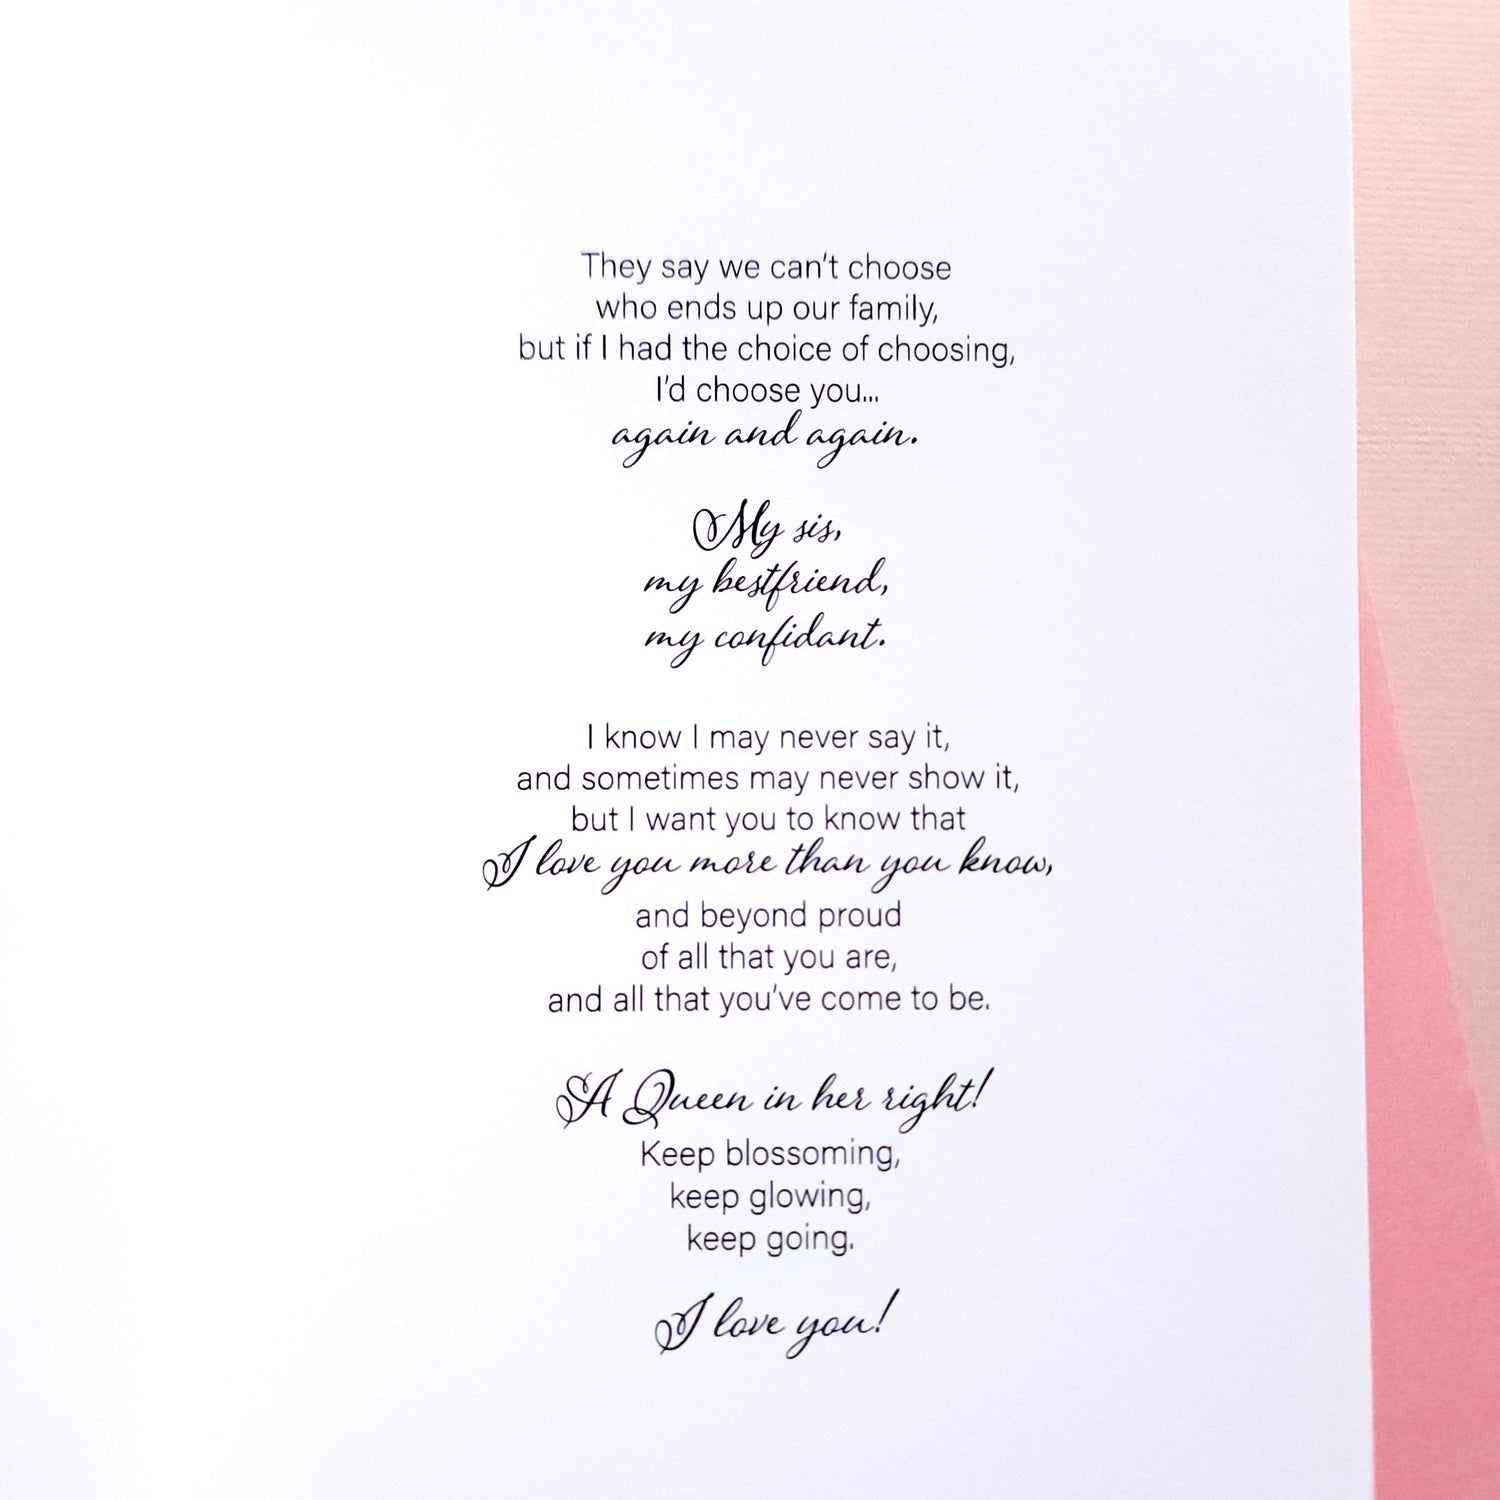 They say we can't choose
who ends up our family,
but if I had the choice of choosing,
I'd choose you...
again and again.
My sis,
my bestfriend,
my confidant.
I know I may never say it,
and sometimes may never show it,
but I want you to know that
I love you more than you know,
and beyond proud
of all that you are,
and all that you've come to be.
A Queen in her right!
Keep blossoming,
keep glowing,
keep going.
I love you!